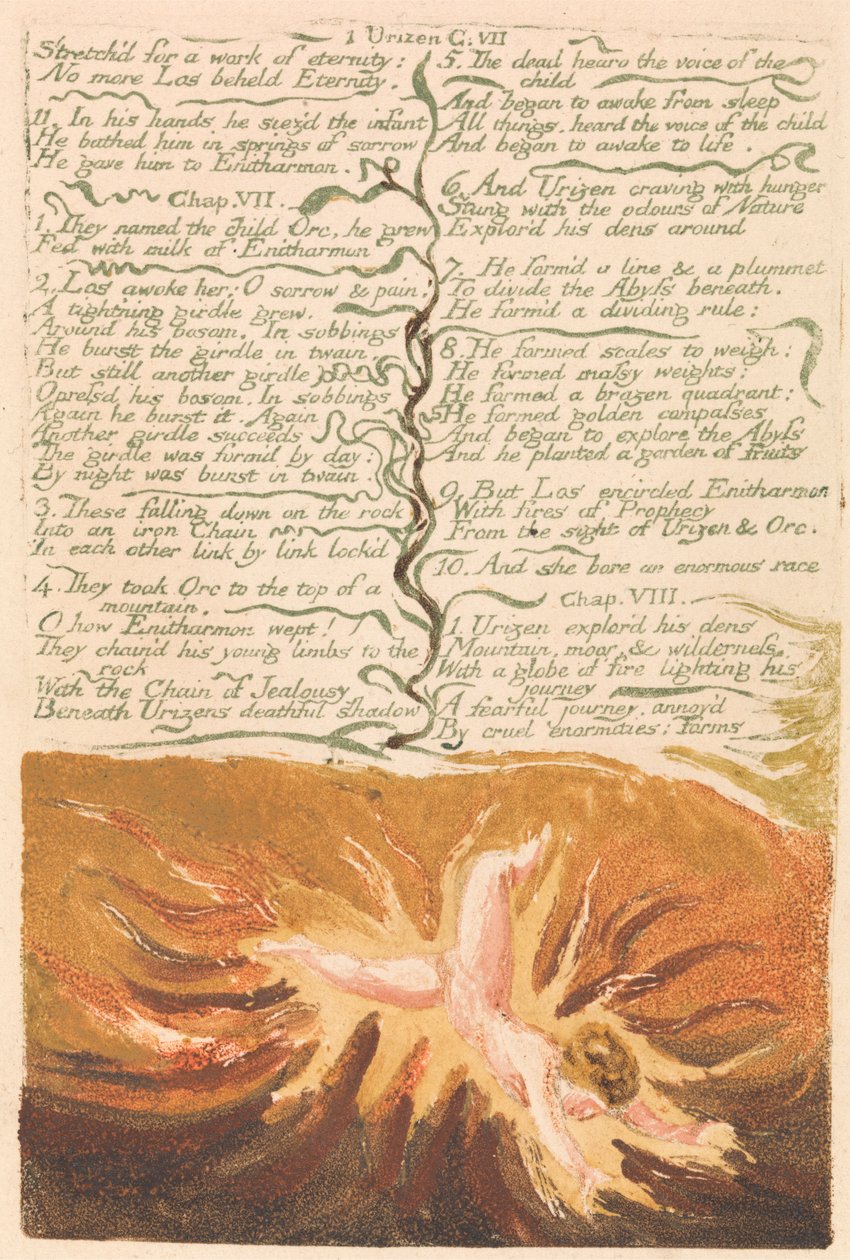 1 Urizen C: VII
Stretch'd for a work of eternity:
No more Los beheld Eternity.
11. In his hands he siez'd the infant
He bathed him in springs of sorrow
He gave him to Enitharmon.
Chap. VII.
1. They named the child Orc, he grew
Fed with milk of Enitharmon
2. Los awoke her; O sorrow & pain!
A tightning girdle grew,
Around his bosom. In sobbings
He burst the girdle in twain,
But still another girdle
Opressd his bosom, In sobbings
Again he burst it. Again
Another girdle succeeds
The girdle was form'd by day:
By night was burst in twain.
3. These falling down on the rock
Into an iron Chain
In each other link by link lock'd
4. They took Orc to the top of a
mountain.
O how Enitharmon wept!
They chain'd his young limbs to the
rock
With the Chain of Jealousy
Beneath Urizens deathful shadow
5. The dead heard the voice of the
child
And began to awake from sleep
All things. heard the voice of the child
And began to awake to life.
6. And Urizen craving with hunger
Stung with the odours of Nature
Explor'd his dens around
7. He form'd a line & a plummet
To divide the Abyss beneath.
He form'd a dividing rule:
8. He formed scales to weigh;
He formed massy weights;
He formed a brazen quadrant;
He formed golden compasses
And began to explore the Abyss
And he planted a garden of fruits
9. But Los encircled Enitharmon
With fires of Prophecy
From the sight of Urizen & Orc.
10. And she bore an enormous race
Chap. VIII.
1. Urizen explor'd his dens
Mountain, moor, & wilderness,
With a globe of fire lighting his
journey
A fearful journey, annoy'd
By cruel enormities: forms